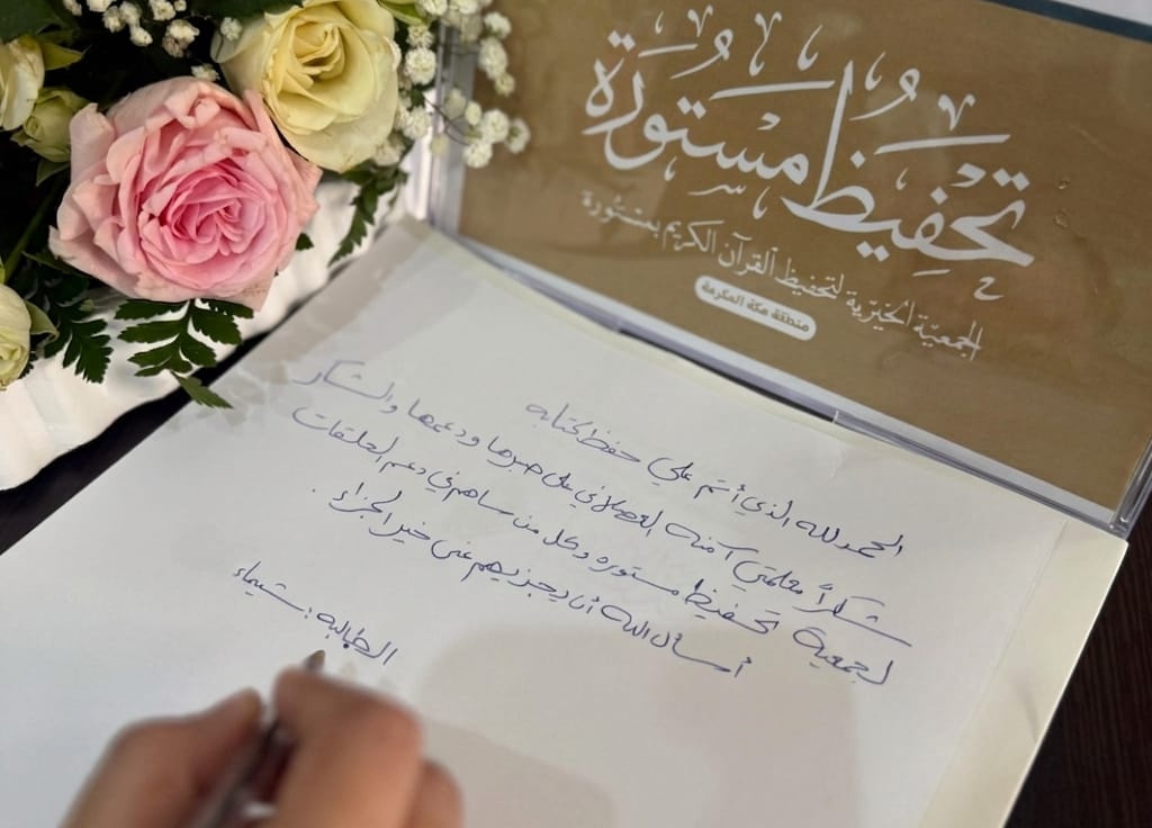 تحفيظ مستورة
الجمعيّة الخيْريّة لتحفيظ القرآن الكريم بمستورة
منطقة مكة المكرمة
الحمد لله الذي أتم علي حفظ كتابه
شكراً معلمتي آمنه الفضلاني على صبرها ودعمها والشكر
لجمعية تحفيظ مستوره وكل من ساهم في دعم الحلقات
أسأل الله أن يجزيهم عني خير الجزاء.
الطالبه: شيماء